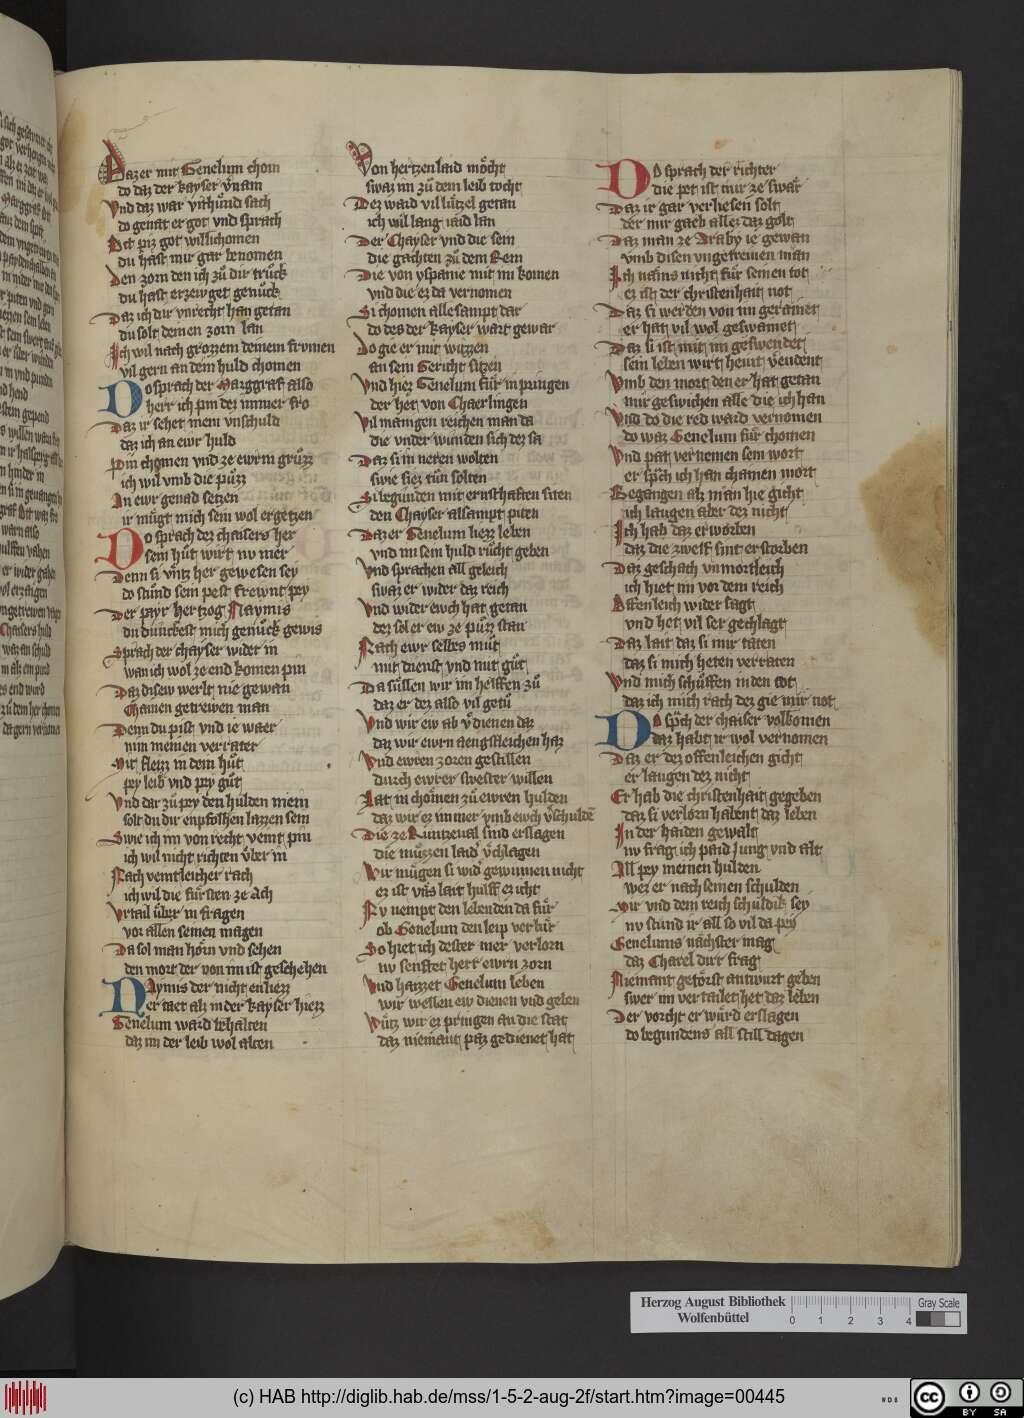 Daz er mit Genelum chom
do daz der kayser v̄nam
Vnd daz war v̄ahůnd sach
do genat er got vnd sprach
Het piz got willichomen
du hast mir gar benomen
Den zorn den ich zů dir trůck
du hast erzewget genůck
Daz ich dir vnrecht han getan
du solt deinen zorn lan
Ich wil nach grozzem deinem frvmen
vil gern an dem huld chomen
Do sprach der Marggraf also
herr ich pin dez immer fro
Daz ir sehet mein vnschuld
daz ich an ewr huld
Pin chomen vnd ze ewrm grůzz
ich wil vmb die půzz
In ewr genad setzen
ir mügt mich sein wol ergetzen
Do sprach dez chaisers her
sem hůt wirt nv mer
Denn si v̈ntz her gewesen sey
do stůnd sein pest frewnt pey
Der payr hertzog Naymis
du dunckest mich genůck gewis
Sprach der chayser wider in
wan ich wol ze end komen pin
Daz disew werlt nie gewan
Chainen getrewen man
Denn du pist vnd ie waer
nim meinen verrater
Mit fleizz in dem hůt
pey leib vnd pey gůt
Vnd dar zů pey den hulden mein
solt du dir enpfolhen lazzen sein
Swie ich im von recht veint pin
ich wil nicht richten v̈ber in
Nach veintleicher rach
ich wil die fürsten ze Ach
Vrtail v̈ber in fragen
vor allen seinen magen
Da sol man hörn vnd sehen
den mort der von im ist geschehen
Naymis der nicht enliezz
er taet alz in der kayser hiezz
Genelum ward behalten
daz im der leib wol alten
Von hertzen laid möcht
swaz im zů dem leib tocht
Dez ward vil lützel getan
ich wil lang maid lan
Der Chayser vnd die sein
die gachten zů dem Rein
Die von yspanie mit im komen
vnd die ez da vernomen
Si chomen alle sampt dar
do des der kayser wart gewar
Do gie er mit witzen
an sein Gericht sitzen
Vnd hiez Genelum für in pringen
der het von Chaerlingen
Vil manigen reichen man da
die vnder wunden sich dez sa
Daz si in neren wolten
swie siez tůn solten
Si begunden mit ernsthaften siten
den Chayser allsampt piten
Daz er Genelum liezz leben
vnd im sein huld růcht geben
Vnd sprachen all geleich
swaz er wider daz reich
Vnd wider ewch hat getan
dez sol er ew ze půzz stan
Nach ewr selbes můt
mit dienst vnd mit gůt
Da süllen wir im helffen zů
daz er dez also vil getů
Vnd wir ew ab v̈dienen daz
daz wir ewrn aengstleichen haz
Vnd ewren zoren gestillen
durch ewrer swester willen
Lat in chömen zů ewren hulden
daz wir ez immer vmb ewch v̈schuldē
Die ze Runtzeual sind erslagen
die müzzen laid v̈chlagen
Wir mügen si wid̕ gewinnen nicht
ez ist vn̈s lait hulff ez icht
Ey nempt den lebenden da für
ob Gonelum den leip verlür
So hiet ich dester mer verlorn
nv senftet herr ewrn zorn
Vnd hayzzet Genelum leben
wir wellen ew dienen vnd geben
Vntz wir ez pringen an die stat
daz niemant paz gedienet hat
Do sprach der richter
die pet ist mir ze swär
Daz ir gar verliesen solt
der mir gaeb allez daz golt
Daz man ze Araby ie gewan
vmb disen vngetrewen man
Ich näms nicht für seinen tot
ez ist der christenhait not
Daz si werden von im geraint
er hat vil wol geswainet
Daz si ist mit im geswendet
sein leben wirt hewt v̈endent
Vmb den mort den er hat getan
mir geswichen alle die ich han
Vnd do die red ward vernomen
do waz Genelum für chomen
Vnd pat vernemen sein wort
er sp̄ch ich han chainen mort
Begangen alz man hie gicht
ich laugen aber dez nicht
Ich hab daz erworben
daz die zwelf sint erstorben
Daz geschach vnmortleich
ich hiet im vor dem reich
Offenleich wider sagt
vnd het vil ser gechlagt
Daz lait daz si mir taten
daz si mich heten verraten
Vnd mich schůffen in den tot
daz ich mich rach dez gie mir not
Do sp̄ch der chaiser volkomen
daz habt ir wol vernomen
Daz er dez offenleichen gicht
er laugen dez nicht
Er hab die christenhait gegeben
daz si verlorn habent daz leben
In der haiden gewalt
nv frag ich paid Jung vnd alt
All pey meinen hulden
wez er nach seinen schulden
Mir vnd dem reich schuldik sey
nv stund ir all so vil da pey
Genelums nächster mag
daz Charel durr frag
Niemant getörst antwurt geben
swer im vertailet het daz leben
Der vorcht er würd erslagen
do begundens all still dagen
Herzog August Bibliothek
Wolfenbüttel
0 1 2 3 4
Gray Scale
(c) HAB http://diglib.hab.de/mss/1-5-2-aug-2f/start.htm?image=00445
cc BY SA